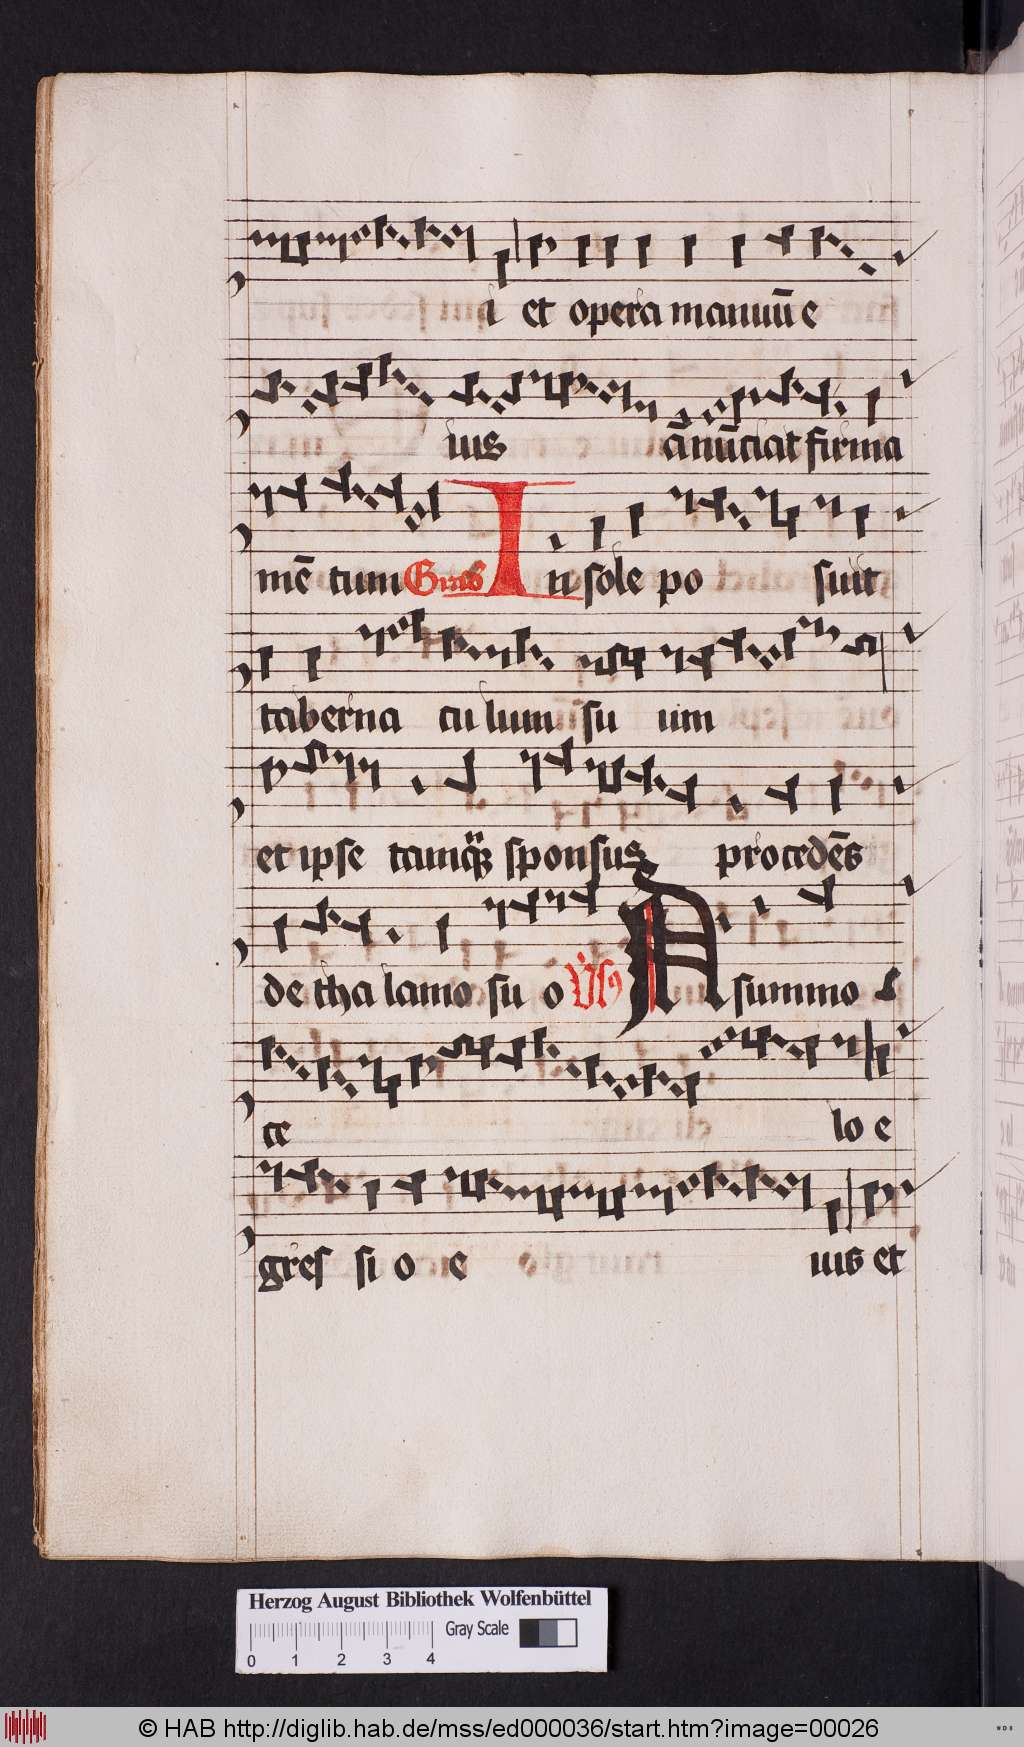 i et opera manuū e
ius ānūciat firma
mē tum Gras In sole po suit
taberna cu lum su um
et ipse tamq̈ sponsus procedēs
de tha lamo su o A summo
ce lo e
gres si o e ius et
Herzog August Bibliothek Wolfenbüttel
Gray Scale
0 1 2 3 4
© HAB http://diglib.hab.de/mss/ed000036/start.htm?image=00026